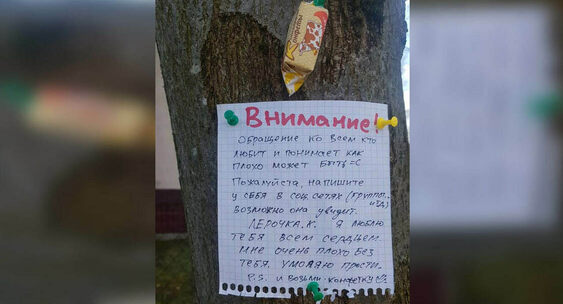 Конфеты
Внимание!
Обращение ко всем кто
любит и понимает как
плохо может быть =С
Пожалуйста, напишите
у себя в соц. сетях (группы..
и тд)
возможно она увидит.
ЛЕРОЧКА.К. Я люблю
тебя всем сердцем
мне очень плохо без
тебя. умоляю прости.
P.S. и возьми конфетку